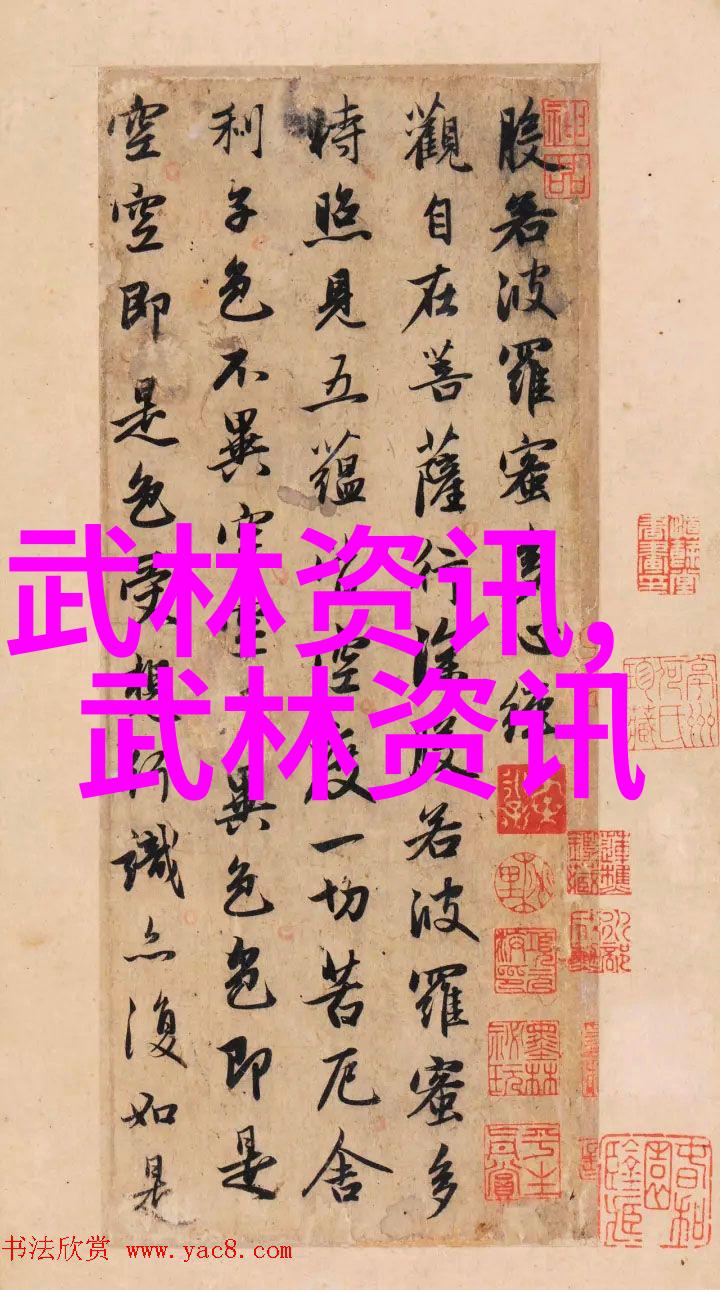 般若波羅蜜多心經
觀自在菩薩行深般若波羅蜜多
時照見五蘊皆空度一切苦厄舍
利子色不異空空不異色色即是
空空即是色受想行識亦復如是
武林资讯,
武林资讯
神品
墨林祕玩
书法欣赏 www.yac8.com